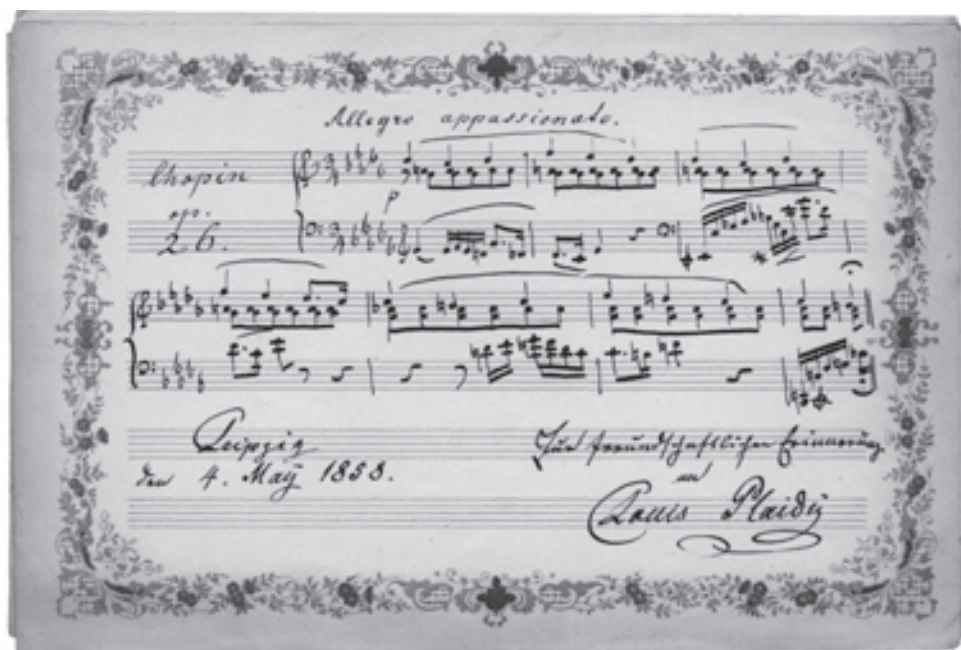 Allegro appassionato.
Chopin
op.
26.
p
Leipzig
den 4. May 1853.
Zur freundschaftlichen Erinnerung
an
Louis Plaidy